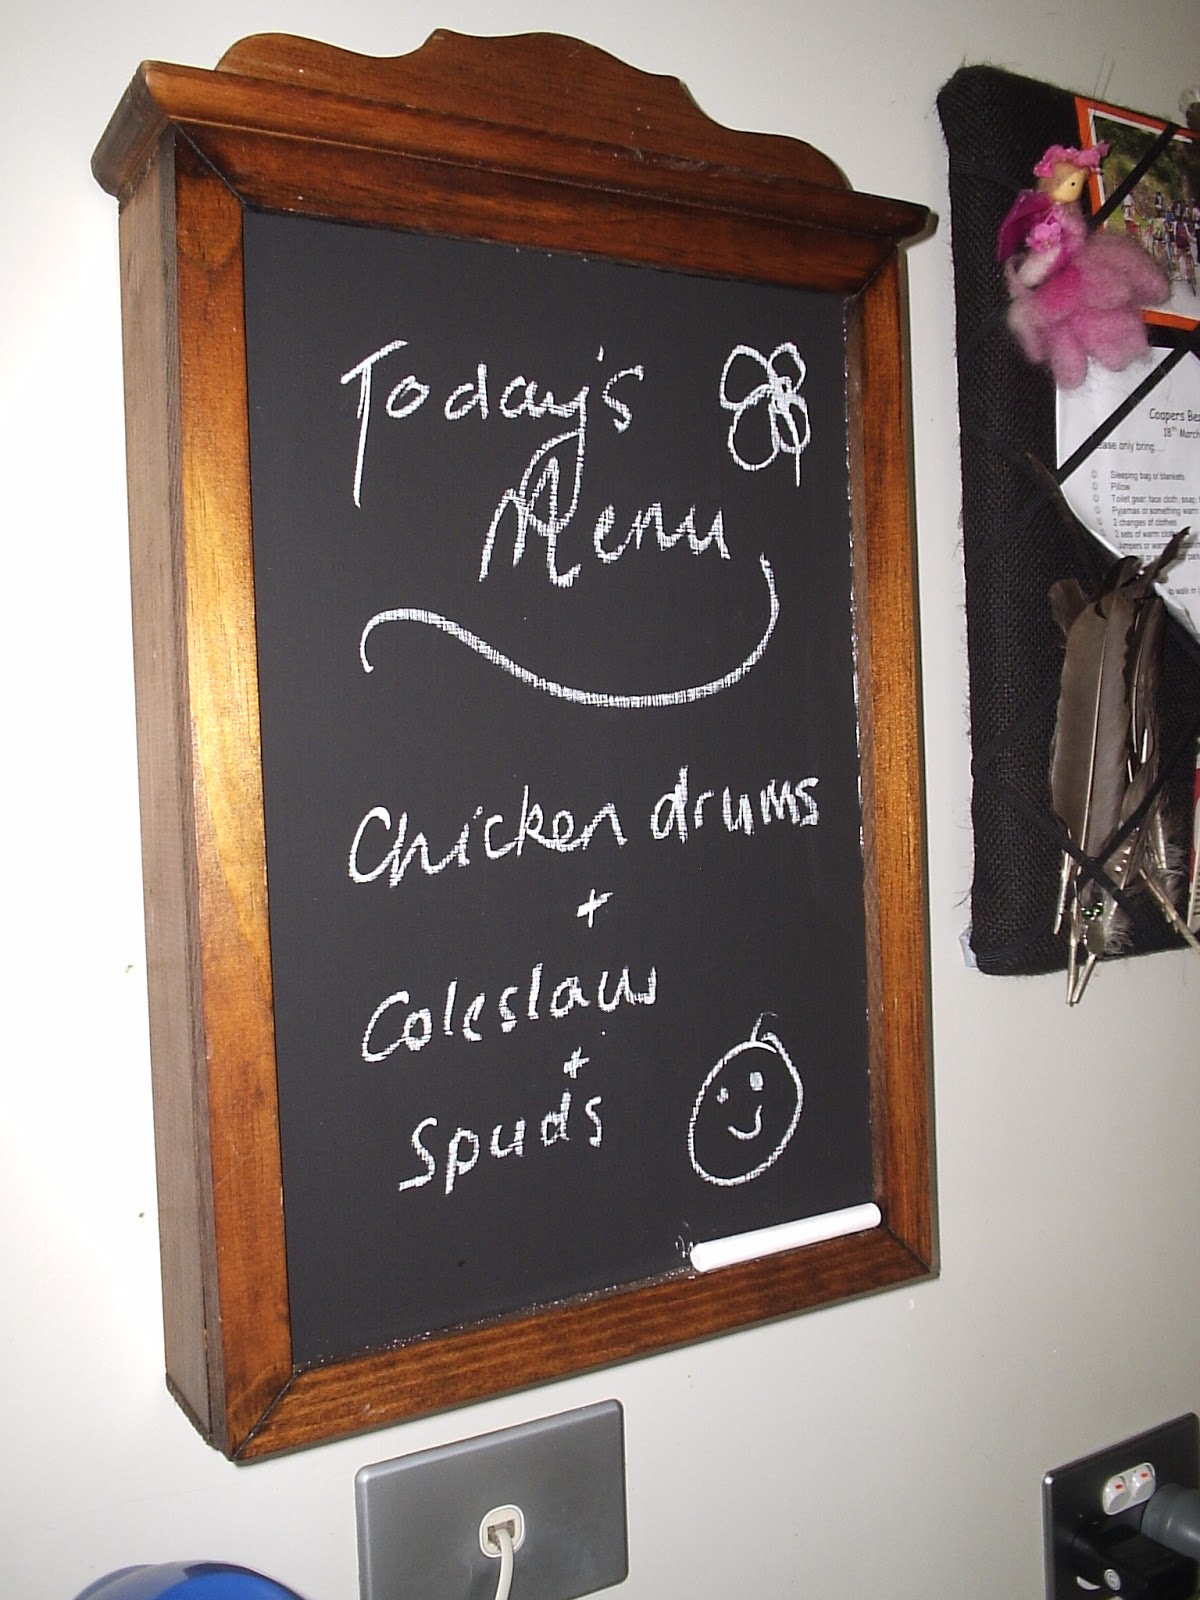 Today's
Menu
Chicken drums
+
Coleslaw
+
Spuds
Coopers
18th March
ease only bring....
Sleeping bag or blankets
Pillow
Toilet gear: face cloth, soap,
Pyjamas or something warm
2 changes of clothes
2 sets of warm
Jumpers or warm
to walk in